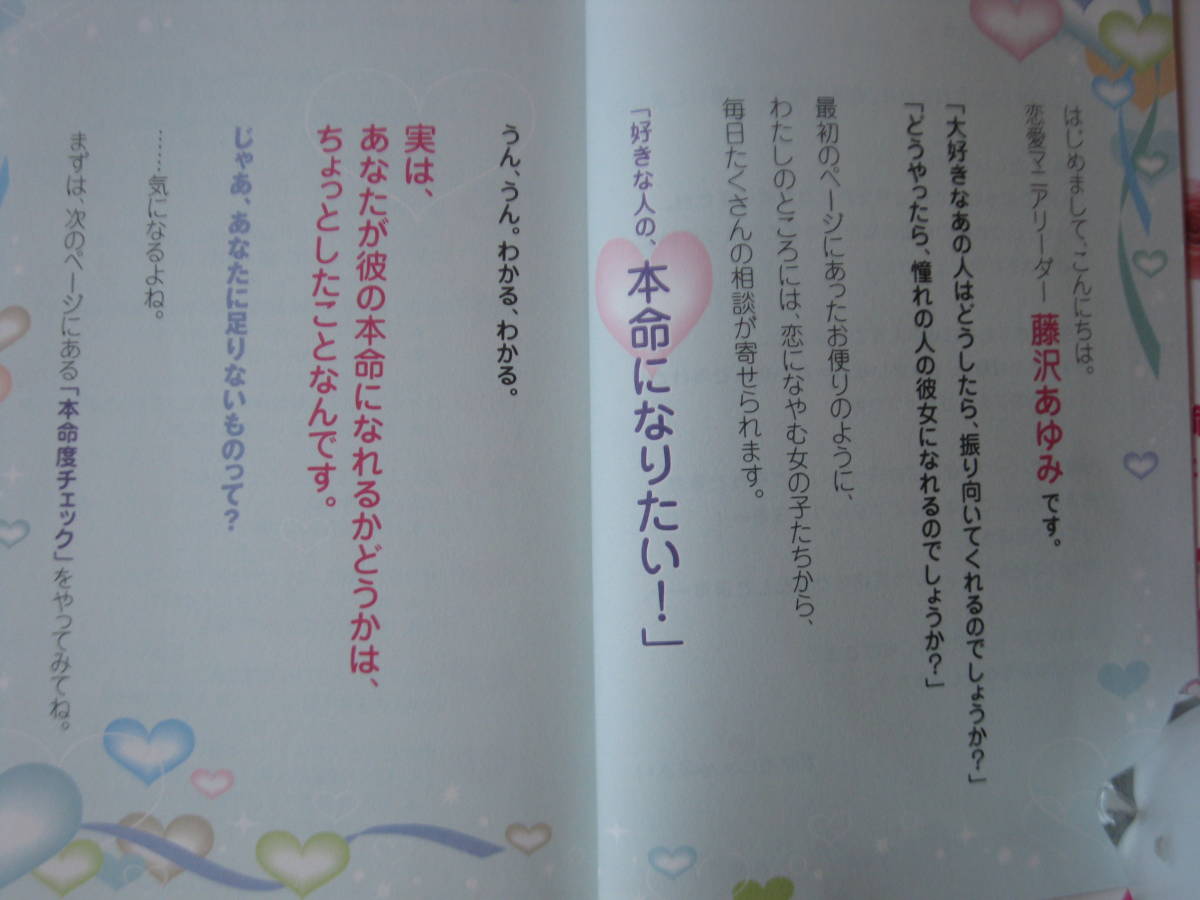 はじめまして、こんにちは。
恋愛マニアリーダー 藤沢あゆみです。
「大好きなあの人はどうしたら、振り向いてくれるのでしょうか？」
「どうやったら、憧れの人の彼女になれるのでしょうか？」
最初のページにあったお便りのように、
わたしのところには、恋になやむ女の子たちから、
毎日たくさんの相談が寄せられます。
「好きな人の、本命になりたい！」
うん、うん。わかる、わかる。
実は、
あなたが彼の本命になれるかどうかは、
ちょっとしたことなんです。
じゃあ、あなたに足りないものって？
……気になるよね。
まずは、次のページにある「本命度チェック」をやってみてね。